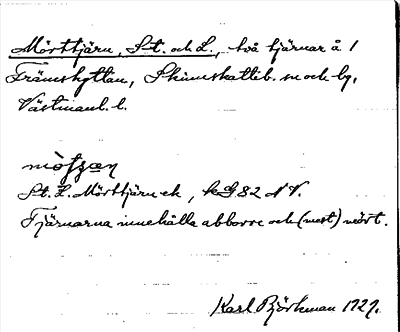 Mörttjärn, St. och L., två tjärnar å
Främshyttan, Skinnskatteb. sn och bg,
Västmanl. l.
St. L. Mörttjärn ek, 82 NV.
Tjärnarna innehålla abborre och (mest) mört.
Karl Björkman 1929.